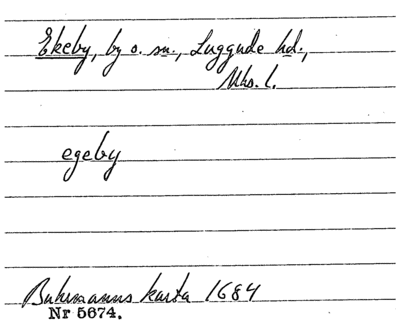 Ekeby, by o. sn., Luggude hd.,
Mhs. l.
egeby
Buhrmanns karta 1684
Nr 5674.